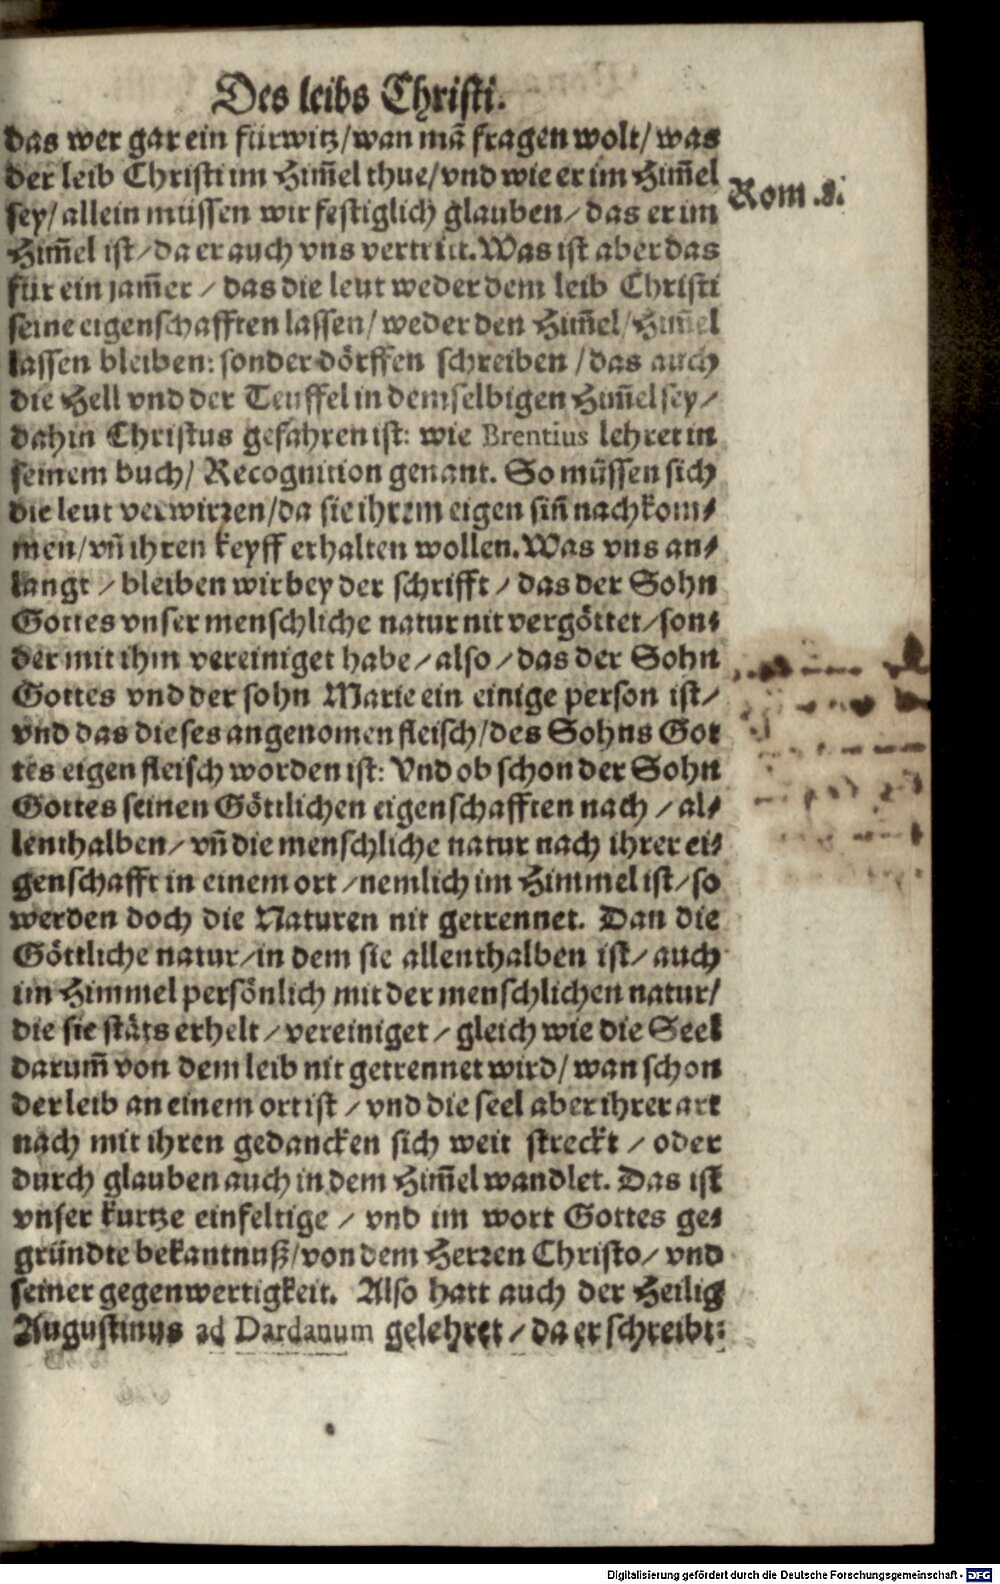 Des leibs Christi.
das wer gar ein fürwitz/wan mã fragen wolt/was
der leib Christi im Him̃el thue/vnd wie er im Him̃el
sey/allein müssen wir festiglich glauben/das er im
Rom .8.
Him̃el ist/da er auch vns vertritt. Was ist aber das
für ein jam̃er/das die leut weder dem leib Christi
seine eigenschafften lassen/weder den Him̃el/Him̃el
lassen bleiben: sonder dörffen schreiben/das auch
die Hell vnd der Teuffel in demselbigen Him̃el sey/
dahin Christus gefahren ist: wie Brentius lehret in
seinem buch/Recognition genant. So müssen sich
die leut verwirren/da sie ihrem eigen siñ nachkom⸗
men/vñ ihren keyff erhalten wollen. Was vns an⸗
langt/bleiben wir bey der schrifft/das der Sohn
Gottes vnser menschliche natur nit vergöttet/son⸗
der mit ihm vereiniget habe/also/das der Sohn
Gottes vnd der sohn Marie ein einige person ist/
vnd das dieses angenomen fleisch/des Sohns Got
tes eigen fleisch worden ist: Vnd ob schon der Sohn
Gottes seinen Göttlichen eigenschafften nach/al⸗
lenthalben/vñ die menschliche natur nach ihrer ei⸗
genschafft in einem ort/nemlich im Himmel ist/so
werden doch die Naturen nit getrennet. Dan die
Göttliche natur/in dem sie allenthalben ist/auch
im Himmel persönlich mit der menschlichen natur/
die sie stäts erhelt/vereiniget/gleich wie die Seel
darum̃ von dem leib nit getrennet wird/wan schon
der leib an einem ort ist/vnd die seel aber ihrer art
nach mit ihren gedancken sich weit streckt/oder
durch glauben auch in dem Him̃el wandlet. Das ist
vnser kurtze einfeltige/vnd im wort Gottes ge⸗
gründte bekantnuß/von dem Herren Christo/vnd
seiner gegenwertigkeit. Also hatt auch der Heilig
Augustinus ad Dardanum gelehret/da er schreibt:
Digitalisierung gefördert durch die Deutsche Forschungsgemeinschaft - DFG